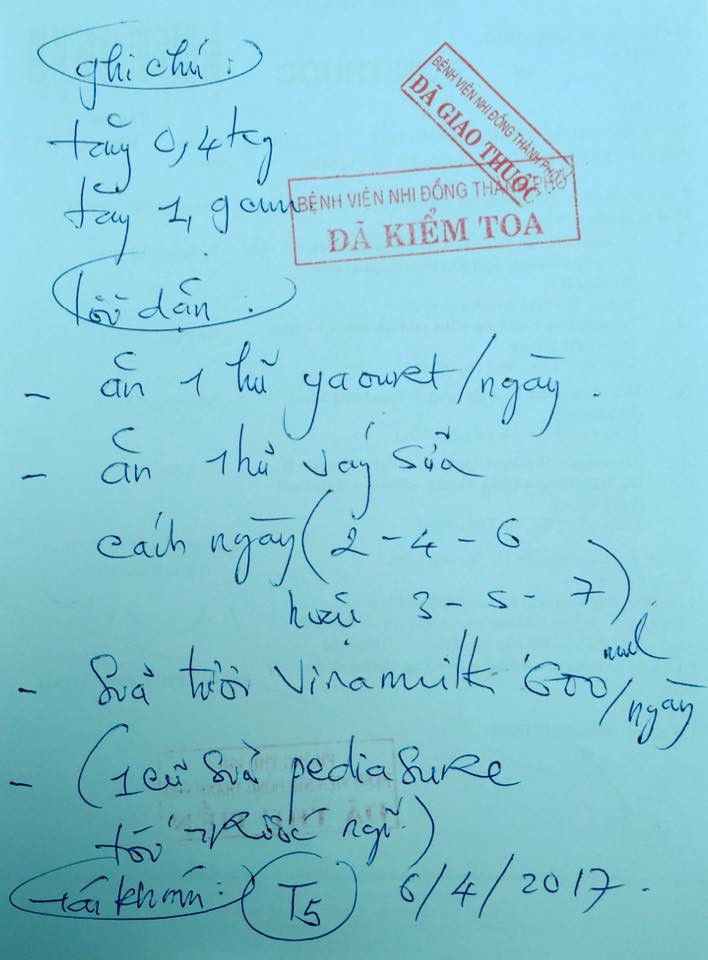 ghi chú :
tăng 0,4 kg
tăng 1,9 cm
BỆNH VIỆN NHI ĐỒNG THÀNH PHỐ
ĐÃ GIAO THUỐC
BỆNH VIỆN NHI ĐỒNG THÀNH PHỐ
ĐÃ KIỂM TOA
lời dặn :
- ăn 1 hũ yaourt/ngày .
- ăn 1 hũ váng sữa
cách ngày (2 - 4 - 6
hoặc 3 - 5 - 7)
- Sữa tươi Vinamilk 600 ml/ngày
- (1 cử Sữa pediasure
tối trước ngủ)
tái khám : T5 6/4/2017.